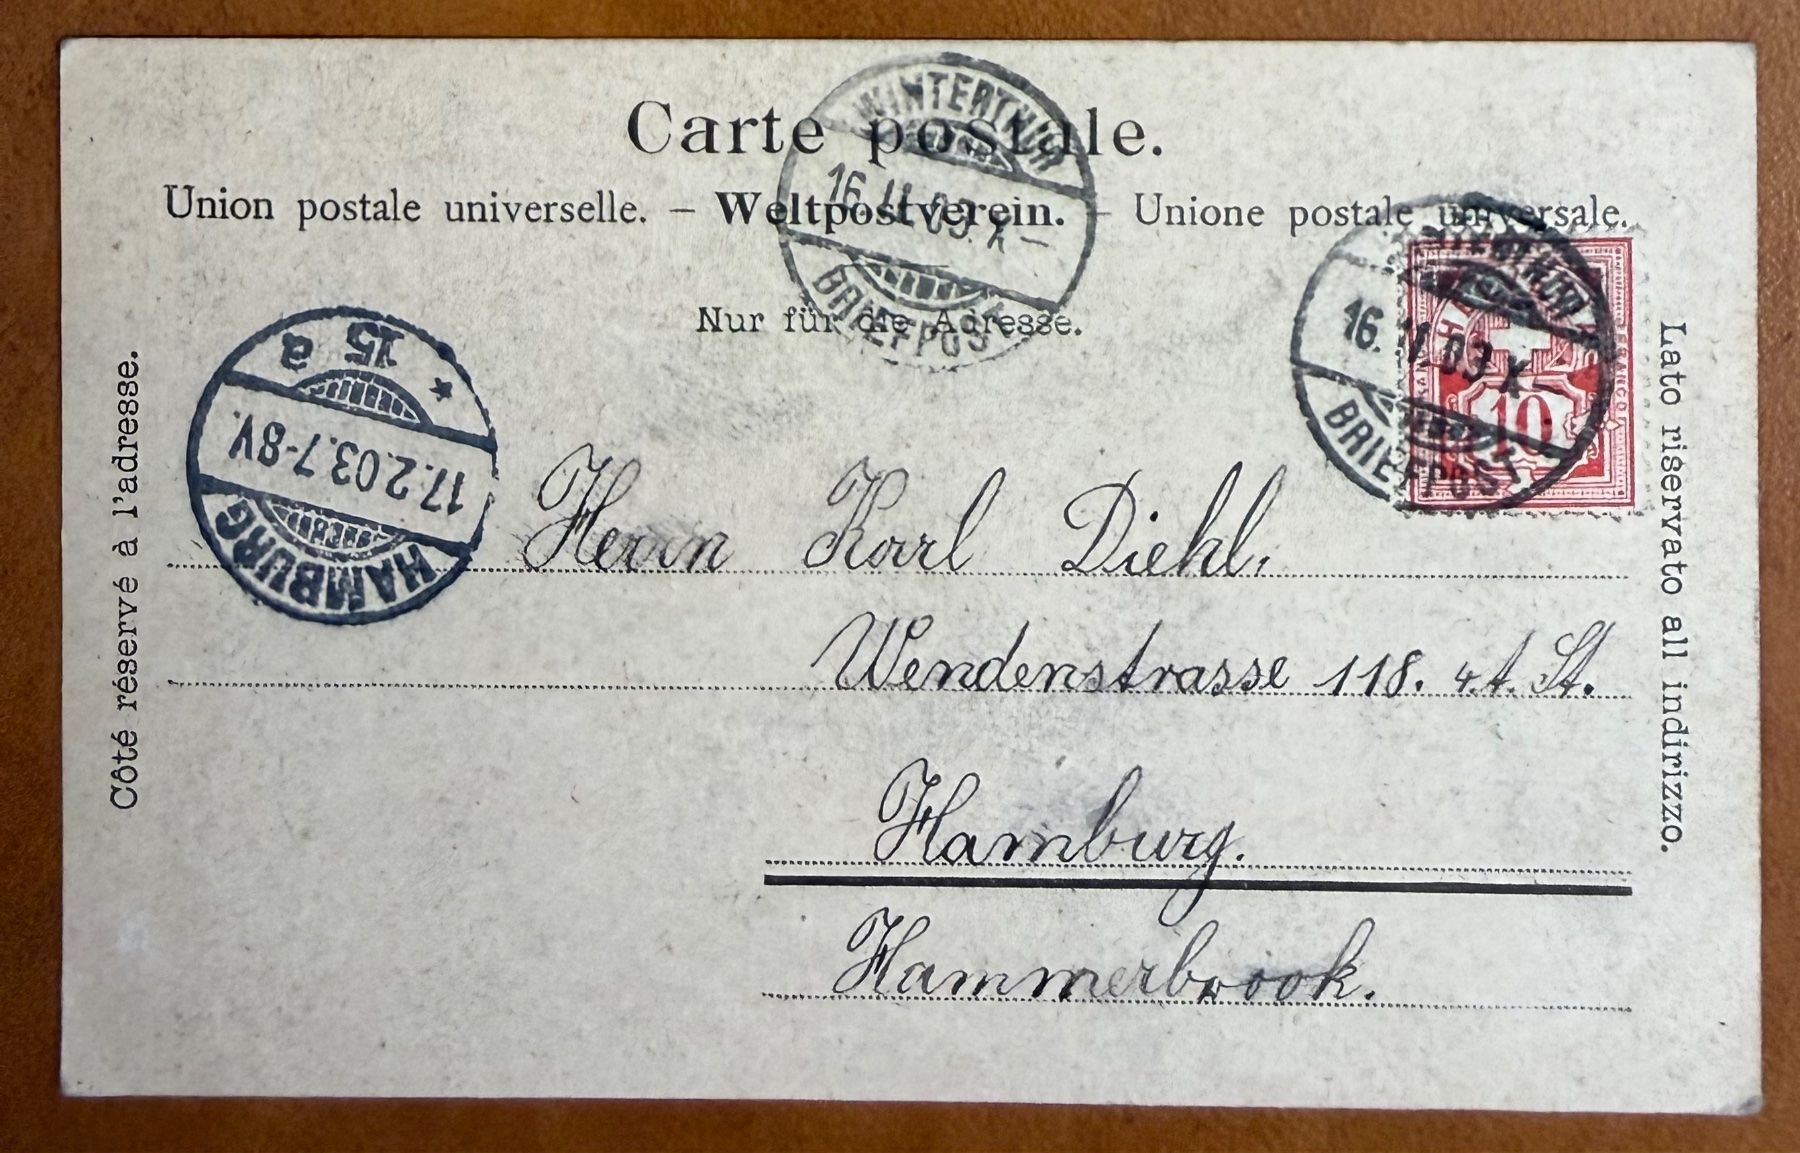 Carte postale.
Union postale universelle. – Weltpostverein. – Unione postale universale.
Nur für die Adresse.
Côté réservé à l'adresse.
Lato riservato all indirizzo.
WINTERTHUR
16. II. 03. X –
BRIEFPOST
WINTERTHUR
16. II. 03 X –
BRIEFPOST
HELVETIA
FRANCO
FRANCO
10
HAMBURG
17.2.03.7-8V.
* 15 a
Herrn Karl Diehl,
Wendenstrasse 118. 4.t. St.
Hamburg.
Hammerbrook.